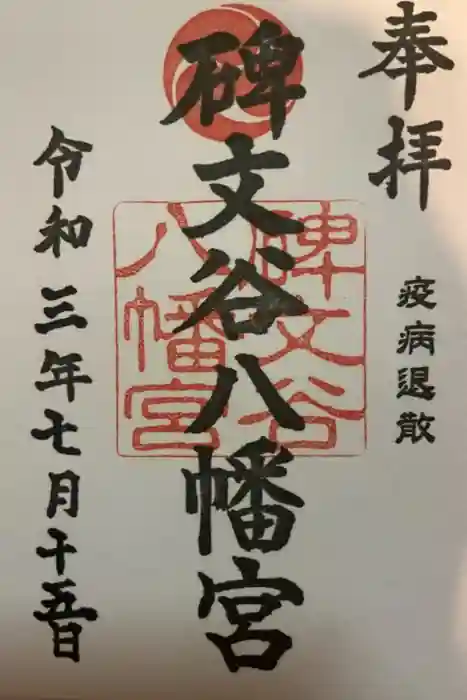 奉拝
疫病退散
碑文谷八幡宮
碑文谷
八幡宮
令和三年七月十五日